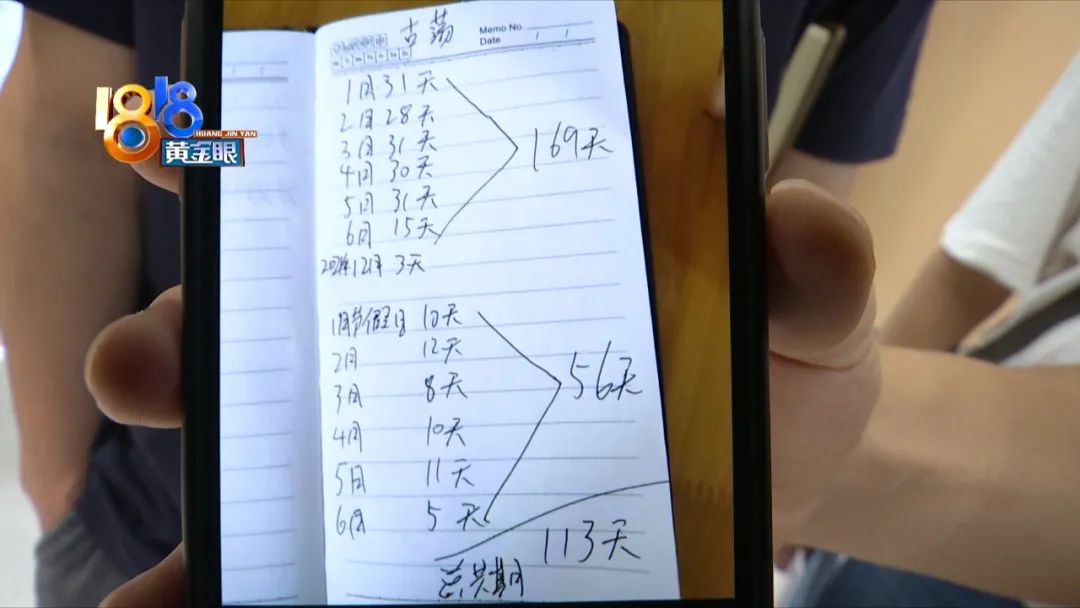 1818
HUANG JIN YAN
黄金眼
古荡
Memo No.
Date
1月31天
2月28天
3月31天
4月30天
5月31天
6月15天
169天
12月 3天
1月节假日 10天
2月 12天
3月 8天
4月 10天
5月 11天
6月 5天
56天
113天
总共期